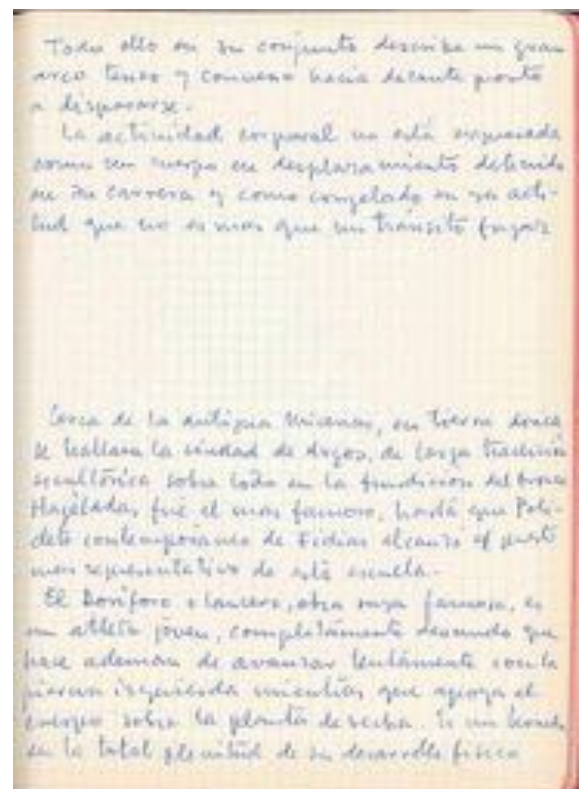 Todo ello en su conjunto describe un gran
arco tenso y convexo hacia delante pronto
a dispararse.
La actividad corporal no está expresada
como un cuerpo en desplazamiento detenido
en su carrera y como congelado en su acti-
tud que no es mas que un tránsito fugaz
Cerca de la antigua Micenas, en tierra dorica
se hallaba la ciudad de Argos, de larga tradición
escultórica sobre todo en la fundición del bronce
Hagéladas, fué el mas famoso, hasta que Poli-
cleto contemporaneo de Fidias alcanzó el puesto
mas representativo de esta escuela.
El Doriforo o lancero, obra suya famosa, es
un atleta joven, completamente desnudo que
hace ademan de avanzar lentamente con la
pierna izquierda mientras que apoya el
cuerpo sobre la planta derecha. Es un
en la total plenitud de su desarrollo fisico